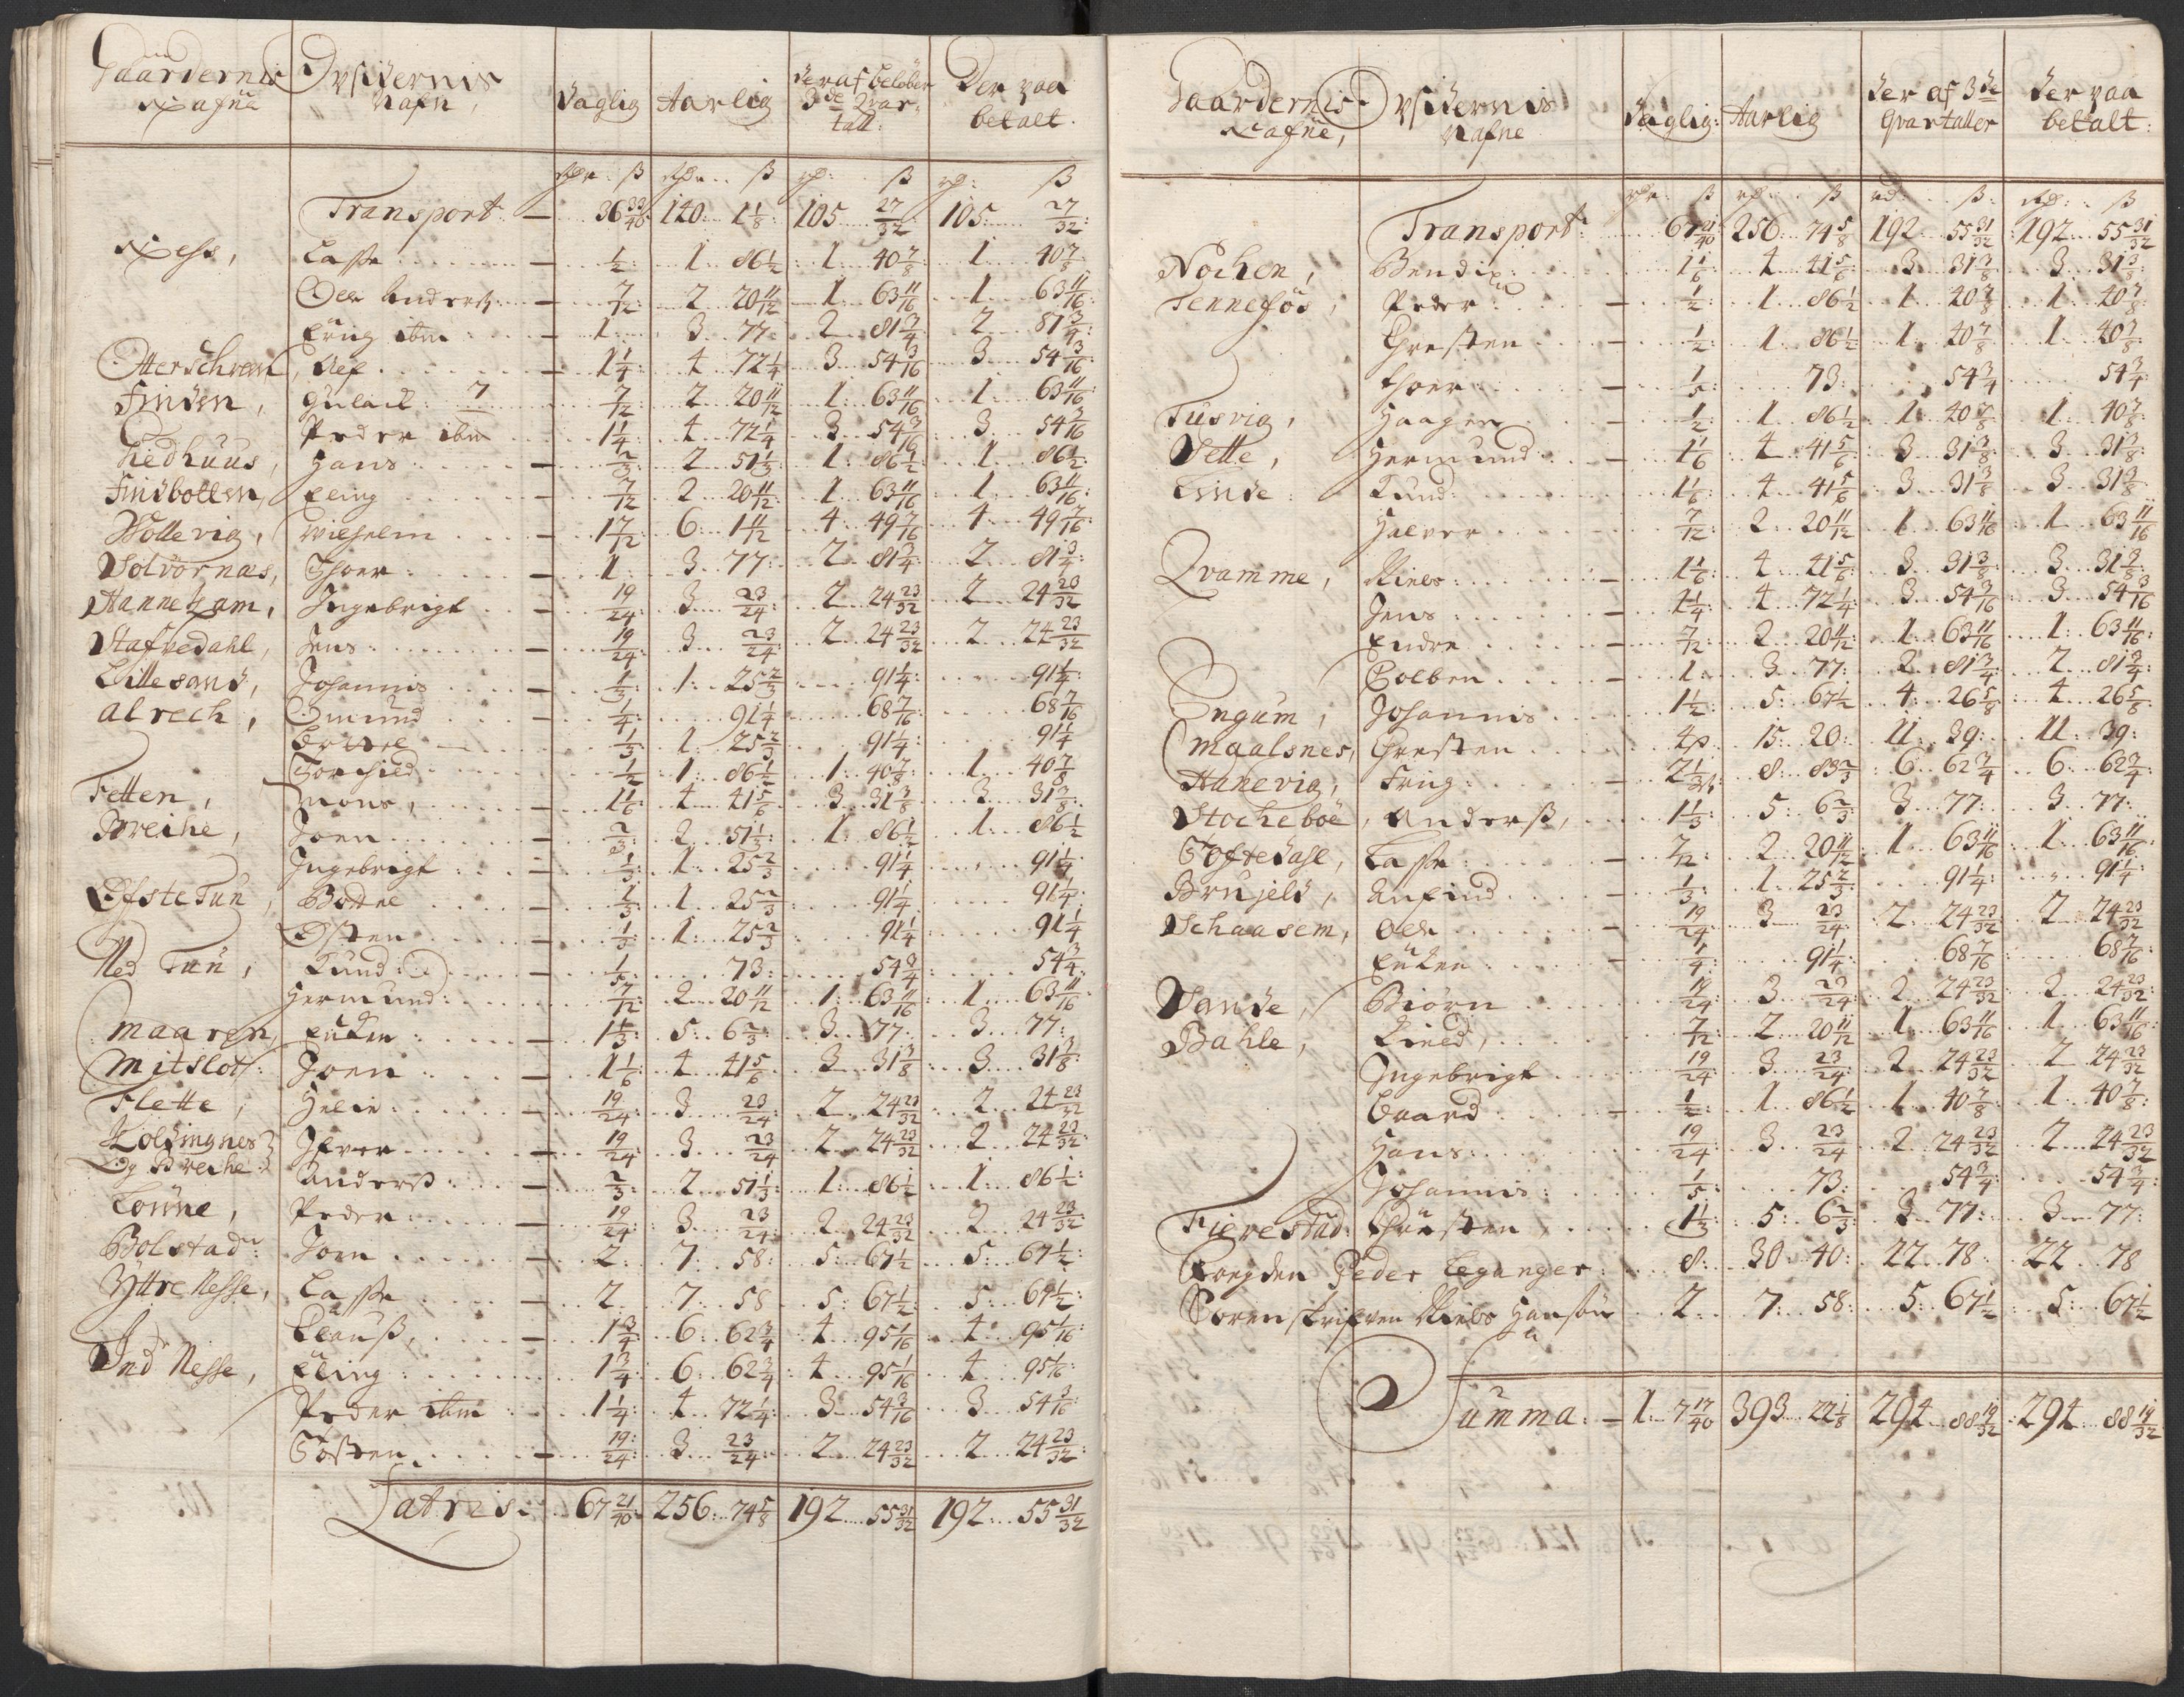 Gaardernis Nafne | Opsidernis Nafn, | Daglig | Aarlig | der af beløber 3de Qvartall: | Der paa betalt.
Transport — 36 33/40 | 140: 1 1/8 | 105 27/32 | 105: 27/32
Ness, Lasse — 1/2 | 1 86 1/2 | 1 40 7/8 | 1 40 7/8
Ole Anders — 7/12 | 2 20 11/12 | 1 63 11/16 | 1 63 11/16
Erug ibm — 1 | 3 77 | 2 81 3/4 | 2 81 3/4
Otterschrem, Olef — 1 1/4 | 4 72 1/4 | 3 54 3/16 | 3 54 3/16
Finden, Gulach 7/12 | 2 20 11/12 | 1 63 11/16 | 1 63 11/16
Peder ibm 1 1/4 | 4 72 1/4 | 3 54 3/16 | 3 54 3/16
Hans — 2/3 | 2 51 1/3 | 1 86 1/2 | 1 86 1/2
Findbotten, Eling — 7/12 | 2 20 11/12 | 1 63 11/16 | 1 63 11/16
Nollevig, Wilhelm — 1 7/12 | 6 1 11/12 | 4 49 7/16 | 4 49 7/16
Solvornæs, Thoer — 1 | 3 77 | 2 81 3/4 | 2 81 3/4
Hannekam, Ingebrigt — 19/24 | 3 23/24 | 2 24 23/32 | 2 24 23/32
Stafvedahl, Jens — 19/24 | 3 23/24 | 2 24 23/32 | 2 24 23/32
Lillesand, Johannis — 1/3 | 1 25 2/3 | 91 1/4 | 91 1/4
Alrech, Omund — 1/4 | 91 1/4 | 68 7/16 | 68 7/16
1/3 | 1 25 2/3 | 91 1/4 | 91 1/4
Torchild 1/2 | 1 86 1/2 | 1 40 7/8 | 1 40 7/8
Fetten, Mons, — 1 1/6 | 4 41 5/6 | 3 31 3/8 | 3 31 3/8
Breche, Joen — 2/3 | 2 51 1/3 | 1 86 1/2 | 1 86 1/2
Ingebrigt — 1/3 | 1 25 2/3 | 91 1/4 | 91 1/4
Øfste Tun, Bottel — 1/3 | 1 25 2/3 | 91 1/4 | 91 1/4
Østen — 1/3 | 1 25 2/3 | 91 1/4 | 91 1/4
Ned Tun, Knud — 1/5 | 73 | 54 3/4 | 54 3/4
Hermund 7/12 | 2 20 11/12 | 1 63 11/16 | 1 63 11/16
Maaren, — 1 1/3 | 5 6 2/3 | 3 77 | 3 77
Mitslot: Joen — 1 1/6 | 4 41 5/6 | 3 31 3/8 | 3 31 3/8
Flette, Helie — 19/24 | 3 23/24 | 2 24 23/32 | 2 24 23/32
Kolsingnes Og Breche, Iffver — 19/24 | 3 23/24 | 2 24 23/32 | 2 24 23/32
Anders — 2/3 | 2 51 1/3 | 1 86 1/2 | 1 86 1/2
Lonne, Peder — 19/24 | 3 23/24 | 2 24 23/32 | 2 24 23/32
Bolstad: Joen — 2 | 7 58 | 5 67 1/2 | 5 67 1/2
Yttre Nesse, Lasse — 2 | 7 58 | 5 67 1/2 | 5 67 1/2
Clauss, — 1 3/4 | 6 62 3/4 | 4 95 1/16 | 4 95 1/16
Indr Nesse, Eling 1 3/4 | 6 62 3/4 | 4 95 1/16 | 4 95 1/16
Peder ibm 1 1/4 | 4 72 1/4 | 3 54 3/16 | 3 54 3/16
Gosten — 19/24 | 3 23/24 | 2 24 23/32 | 2 24 23/32
Lateris: 67 21/40 | 256: 74 5/8 | 192 55 31/32 | 192 55 31/32
Gaardernis Nafne, | Opsidernis Nafne | Daglig: | Aarlig | der af 3de Qvartaller | der paa betalt:
Transport: 67 21/40 | 256 74 5/8 | 192 55 31/32 | 192 55 31/32
Nøchen, Bendix 1 1/6 | 4 41 5/6 | 3 31 3/8 | 3 31 3/8
Tennefos, Peder — 1/2 | 1 86 1/2 | 1 40 7/8 | 1 40 7/8
Chresten — 1/2 | 1 86 1/2 | 1 40 7/8 | 1 40 7/8
Thoer — 1/5 | 73 | 54 3/4 | 54 3/4
Tusvig, Haagen — 1/2 | 1 86 1/2 | 1 40 7/8 | 1 40 7/8
Vette, Hermund — 1 1/6 | 4 41 5/6 | 3 31 3/8 | 3 31 3/8
Linde Knud 1 1/6 | 4 41 5/6 | 3 31 3/8 | 3 31 3/8
Halvor 7/12 | 2 20 11/12 | 1 63 11/16 | 1 63 11/16
Qvamme, Niels — 1 1/6 | 4 41 5/6 | 3 31 3/8 | 3 31 3/8
Jens 1 1/4 | 4 72 1/4 | 3 54 3/16 | 3 54 3/16
Endre — 7/12 | 2 20 11/12 | 1 63 11/16 | 1 63 11/16
Colben — 1 | 3 77 | 2 81 3/4 | 2 81 3/4
Engum, Johannis 1 1/2 | 5 67 1/2 | 4 26 5/8 | 4 26 5/8
Maalsnes, Chresten 4 | 15 20 | 11 39 | 11 39
Hanevig, Erug 2 1/3 | 8 83 2/3 | 6 62 3/4 | 6 62 3/4
Stocheboe, Anderss, 1 1/3 | 5 6 2/3 | 3 77 | 3 77
Lasse — 7/12 | 2 20 11/12 | 1 63 11/16 | 1 63 11/16
Anfind — 1/3 | 1 25 2/3 | 91 1/4 | 91 1/4
Schaasem, Ole — 19/24 | 3 23/24 | 2 24 23/32 | 2 24 23/32
— 1/4 | 91 1/4 | 68 7/16 | 68 7/16
Sande, Biørn 19/24 | 3 23/24 | 2 24 23/32 | 2 24 23/32
Bahle, 7/12 | 2 20 11/12 | 1 63 11/16 | 1 63 11/16
Ingebrigt 19/24 | 3 23/24 | 2 24 23/32 | 2 24 23/32
Baard — 1/2 | 1 86 1/2 | 1 40 7/8 | 1 40 7/8
Hans 19/24 | 3 23/24 | 2 24 23/32 | 2 24 23/32
Johannis 1/5 | 73 | 54 3/4 | 54 3/4
Fierestad: Chresten 1 1/3 | 5 6 2/3 | 3 77 | 3 77
Fogden Peder Leganger 8 | 30 40 | 22 78 | 22 78
Sorenskrifven Niels Hansøn 2 | 7 58 | 5 67 1/2 | 5 67 1/2
Summa: — 1 7 17/40 | 393 22 1/8 | 294 88 19/32 | 294 88 19/32